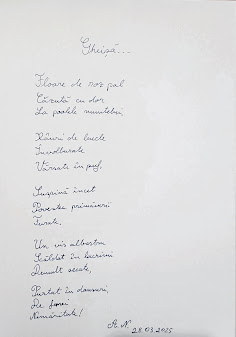 Gheișă...
Floare de roz pal
Căzută cu dor
La poalele muntelui,
Râuri de lacte
Învolburate
Vărsate în puf,
Suspină încet
Povestea primăverii
Furate,
Un vis albastru
Scăldat în lacrimi
Demult secate,
Purtat în dansuri,
De
Nemăritate!
A.N.
28.03.2025